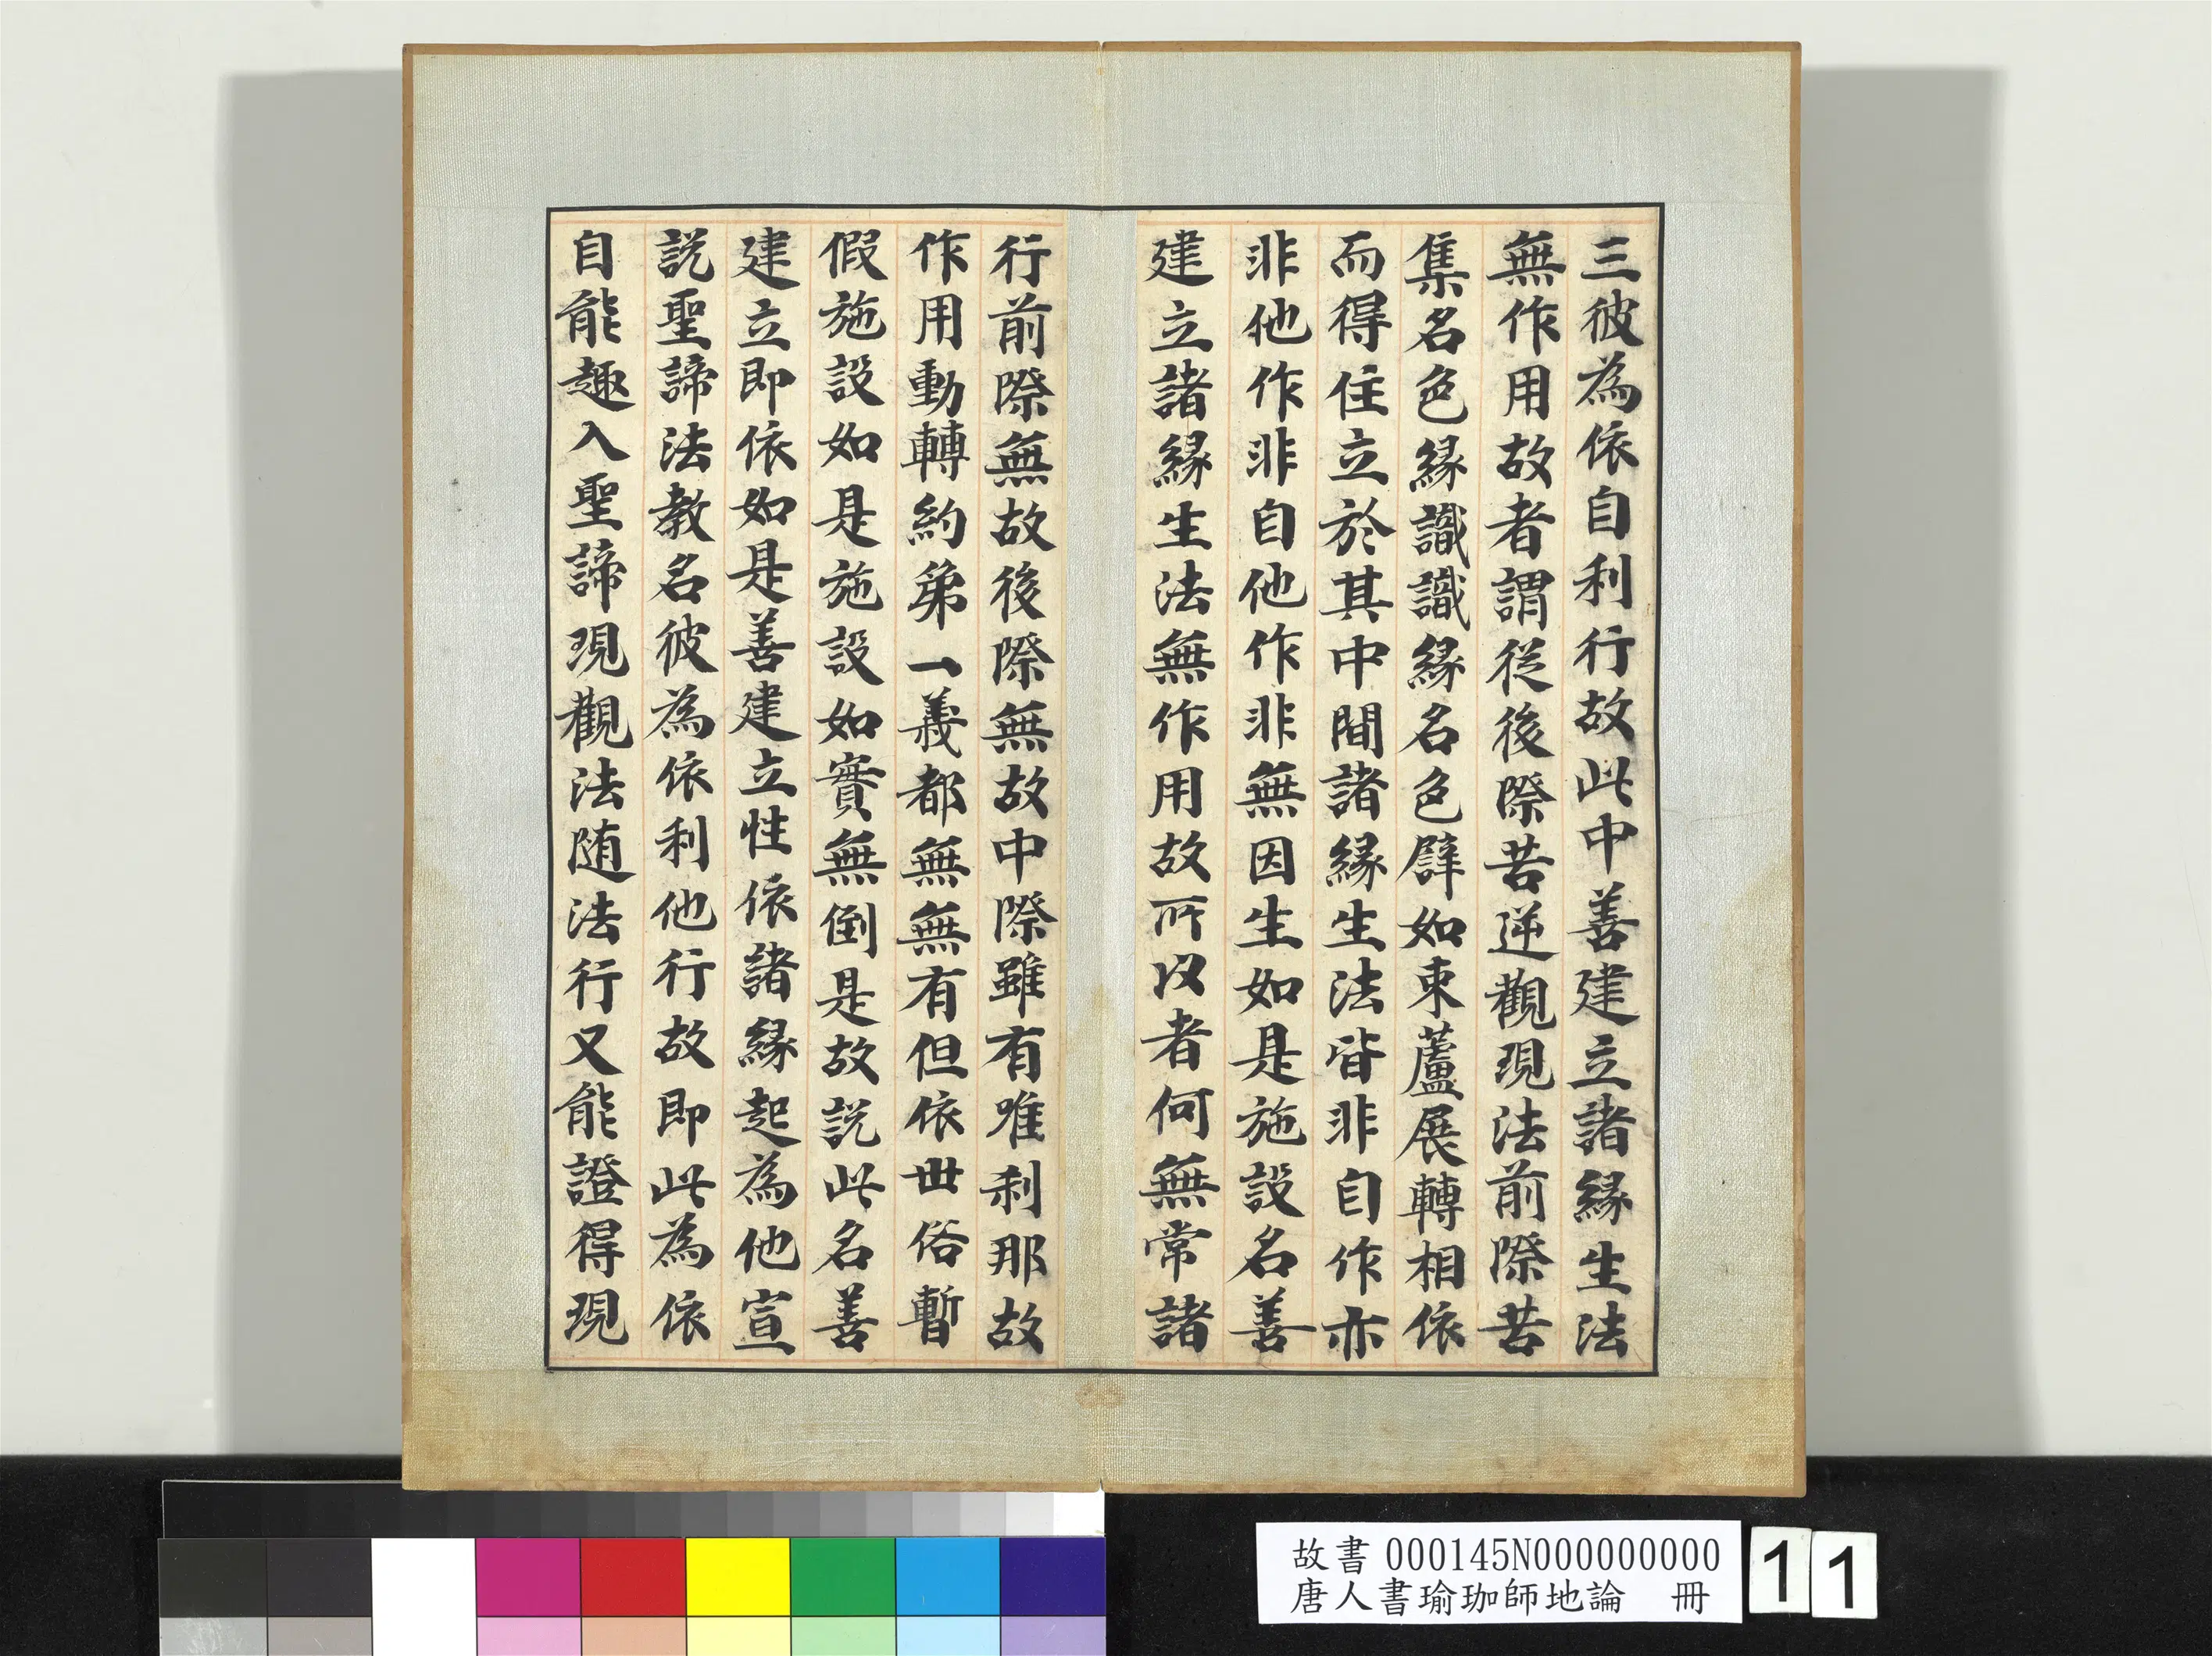 三彼為依自利行故此中善建立諸緣生法
無作用故者謂從後際苦逆觀現法前際苦
集名色緣識識緣名色譬如束蘆展轉相依
而得住立於其中間諸緣生法皆非自作亦
非他作非自他作非無因生如是施設名善
建立諸緣生法無作用故所以者何無常諸
行前際無故後際無故中際雖有唯刹那故
作用動轉約第一義都無無有但依世俗暫
假施設如是施設如實無倒是故説此名善
建立即依如是善建立性依諸緣起為他宣
説聖諦法教名彼為依利他行故即此為依
自能趣入聖諦現觀法随法行又能證得現
故書 000145N000000000
唐人書瑜珈師地論 冊
11